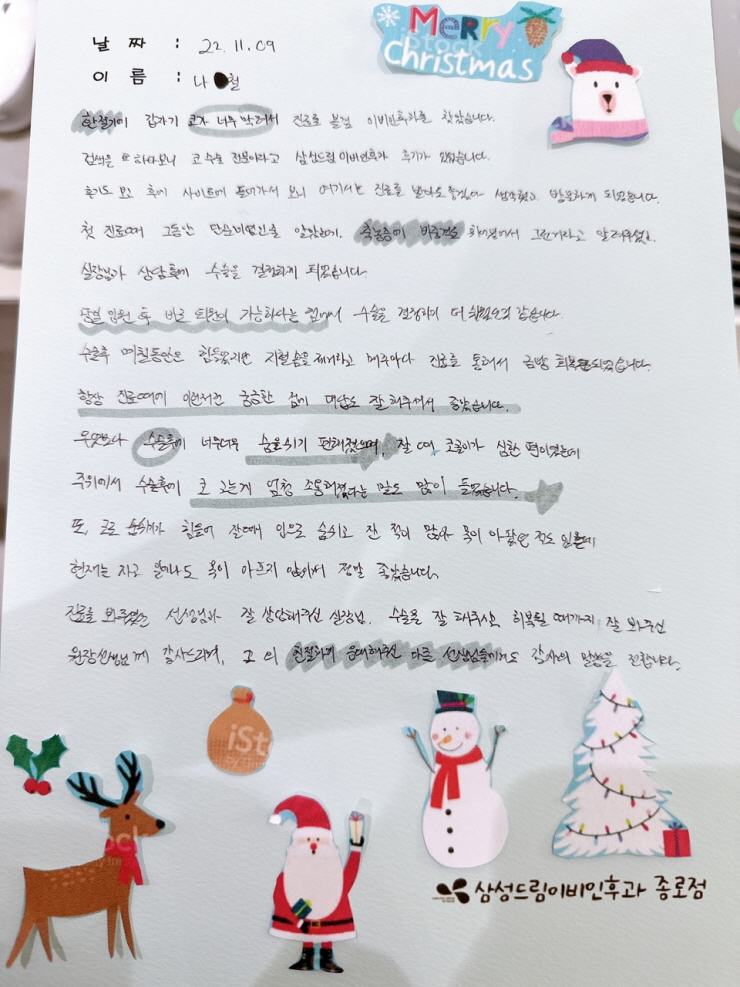 Merry
Christmas
iStock
날 짜 : 22. 11. 09
이 름 : 나 철
환절기에 갑자기 코가 너무 막혀서 진료를 볼겸 이비인후과를 찾았습니다.
검색을 하다보니 코 수술 전문이라고 삼성드림이비인후과 후기가 있었습니다.
후기도 보고 후에 사이트에 들어가서 보니 여기서는 진료를 받아도 좋겠다 생각했고 방문하게 되었습니다.
첫 진료때 그동안 단순비염인줄 알았는데, 축농증에 비중격도 휘어있어서 그런거라고 알려주셨고,
실장님과 상담후에 수술을 결정하게 되었습니다.
당일 입원 후 바로 퇴원이 가능하다는 점에서 수술을 결정하기 더 쉬웠던것 같습니다.
수술후 며칠동안은 힘들었지만 지혈솜을 제거하고 매주마다 진료를 통해서 금방 회복되었습니다.
항상 진료때에 이런저런 궁금한 점에 대답도 잘 해주셔서 좋았습니다.
무엇보다 수술후에 너무너무 숨을쉬기 편해졌으며, 잘 때, 코골이가 심한 편이였는데
주위에서 수술후에 코 고는게 엄청 조용해졌다는 말도 많이 들었습니다.
또, 코로 숨쉬기가 힘들어 잘때에 입으로 숨쉬고 잔 적이 많아 목이 아팠던 적도 있는데
현재는 자고 일어나도 목이 아프지 않아서 정말 좋았습니다.
진료를 봐주셨던 선생님과 잘 상담해주신 실장님, 수술을 잘 해주시고 회복될 때까지 잘 봐주신
원장선생님께 감사드리며, 그 외 친절하게 응대해주신 다른 선생님들께도 감사의 말씀을 전합니다.
iSto
삼성드림이비인후과 종로점